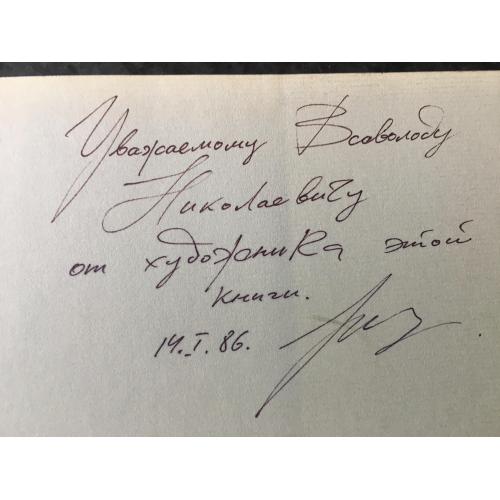 Уважаемому Всеволоду
Николаевичу
от художника этой
книги.
14.I.86.